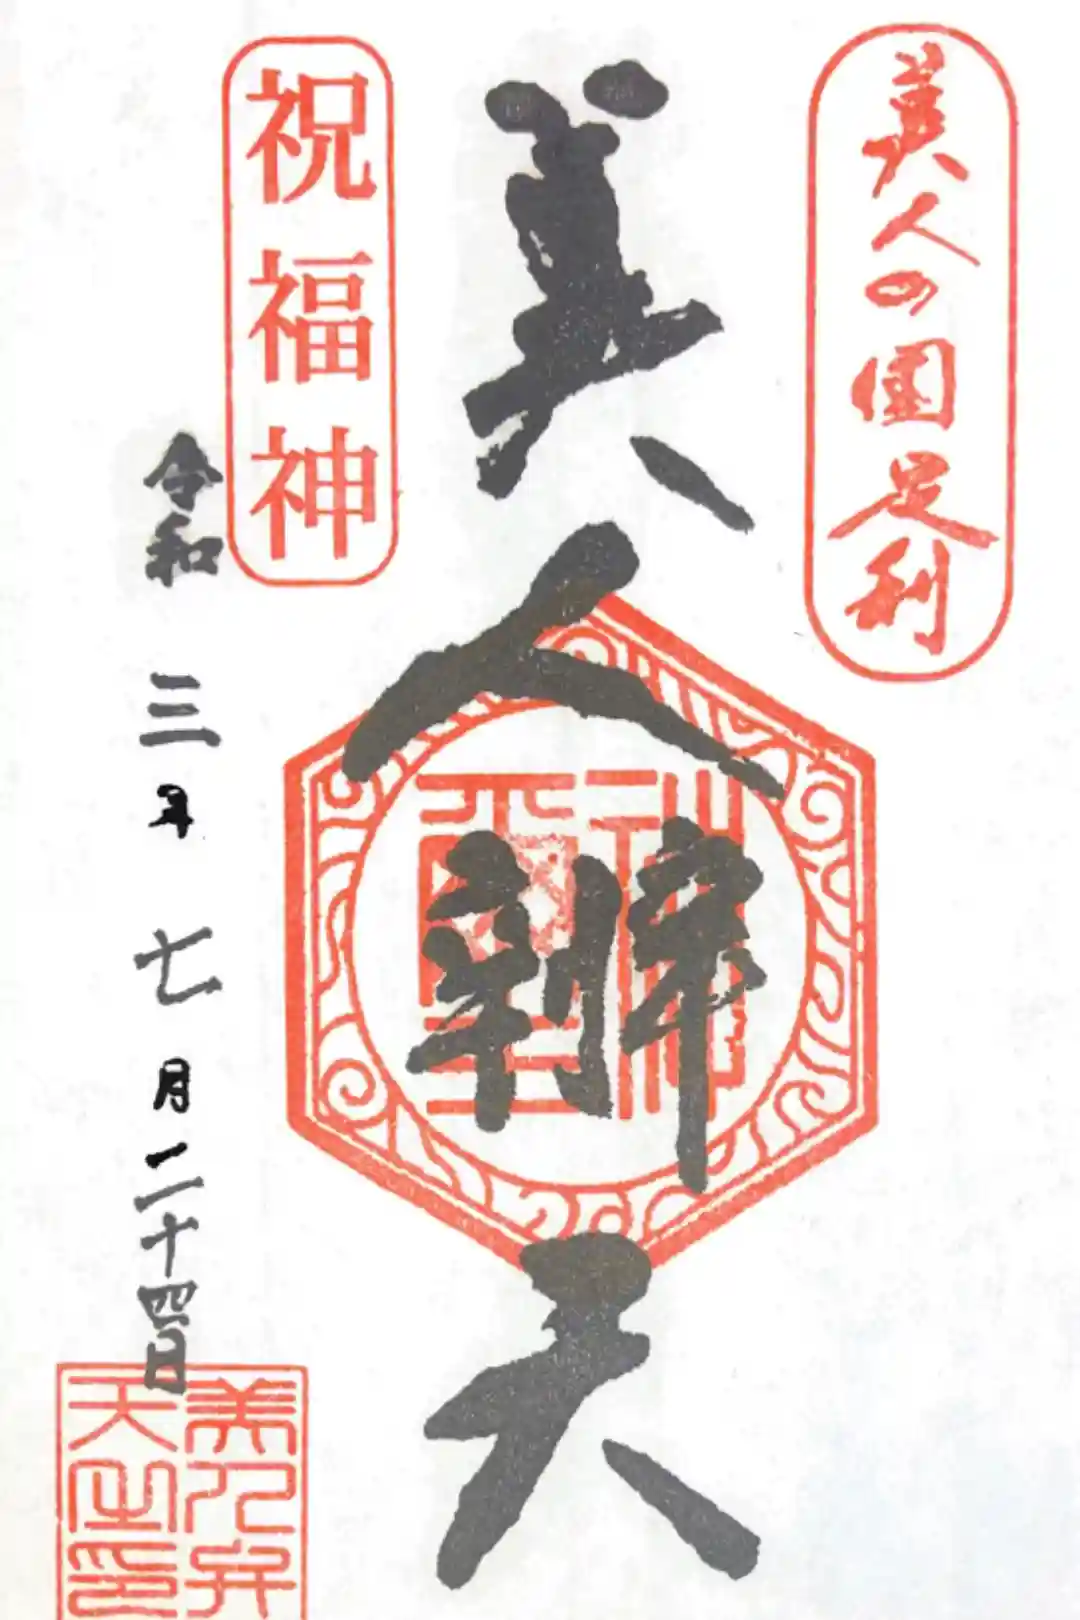 美人の国足利
美人辨天
祝福神
令和三年七月二十四日
美人弁
天之印